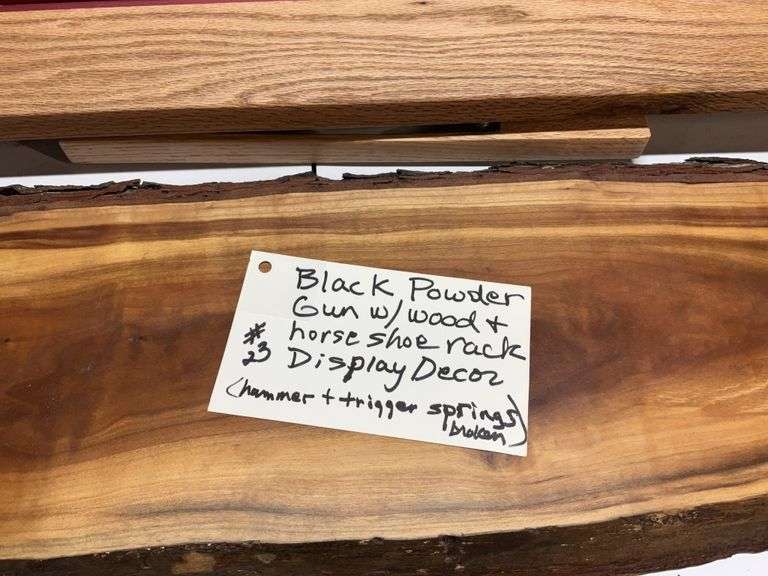 Black Powder
Gun w/wood +
horse shoe rack
#23 Display Decor
(hammer + trigger springs broken)